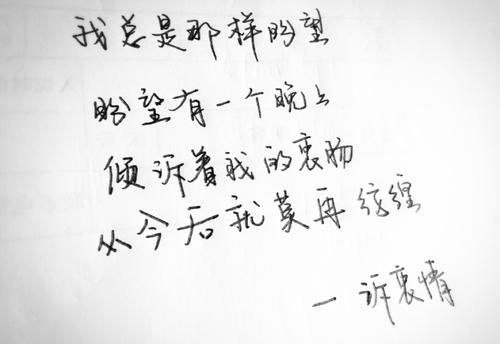 我总是那样盼望
盼望有一个晚上
倾诉着我的衷肠
从今后就莫再纺缠
一诉衷情